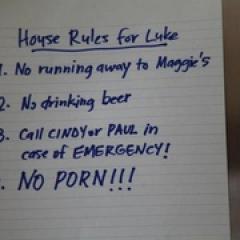 House Rules for Luke
1. No running away to Maggie's
2. No drinking beer
3. Call CINDY or PAUL in
case of EMERGENCY!
. NO PORN!!!